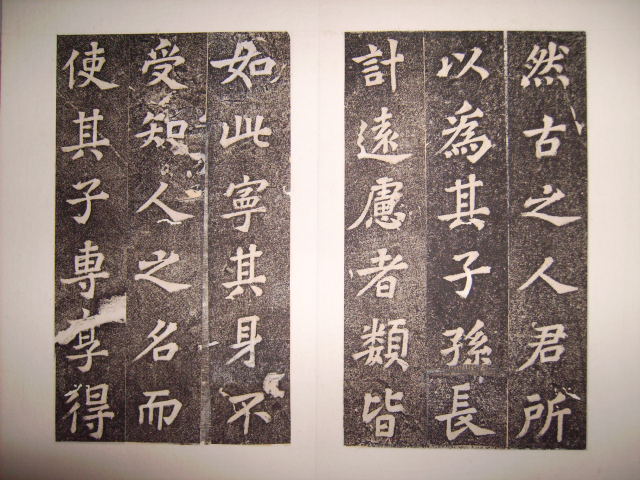 然古之人君所
以為其子孫長
計遠慮者類皆
如此寧其身不
受知人之名而
使其子專享得